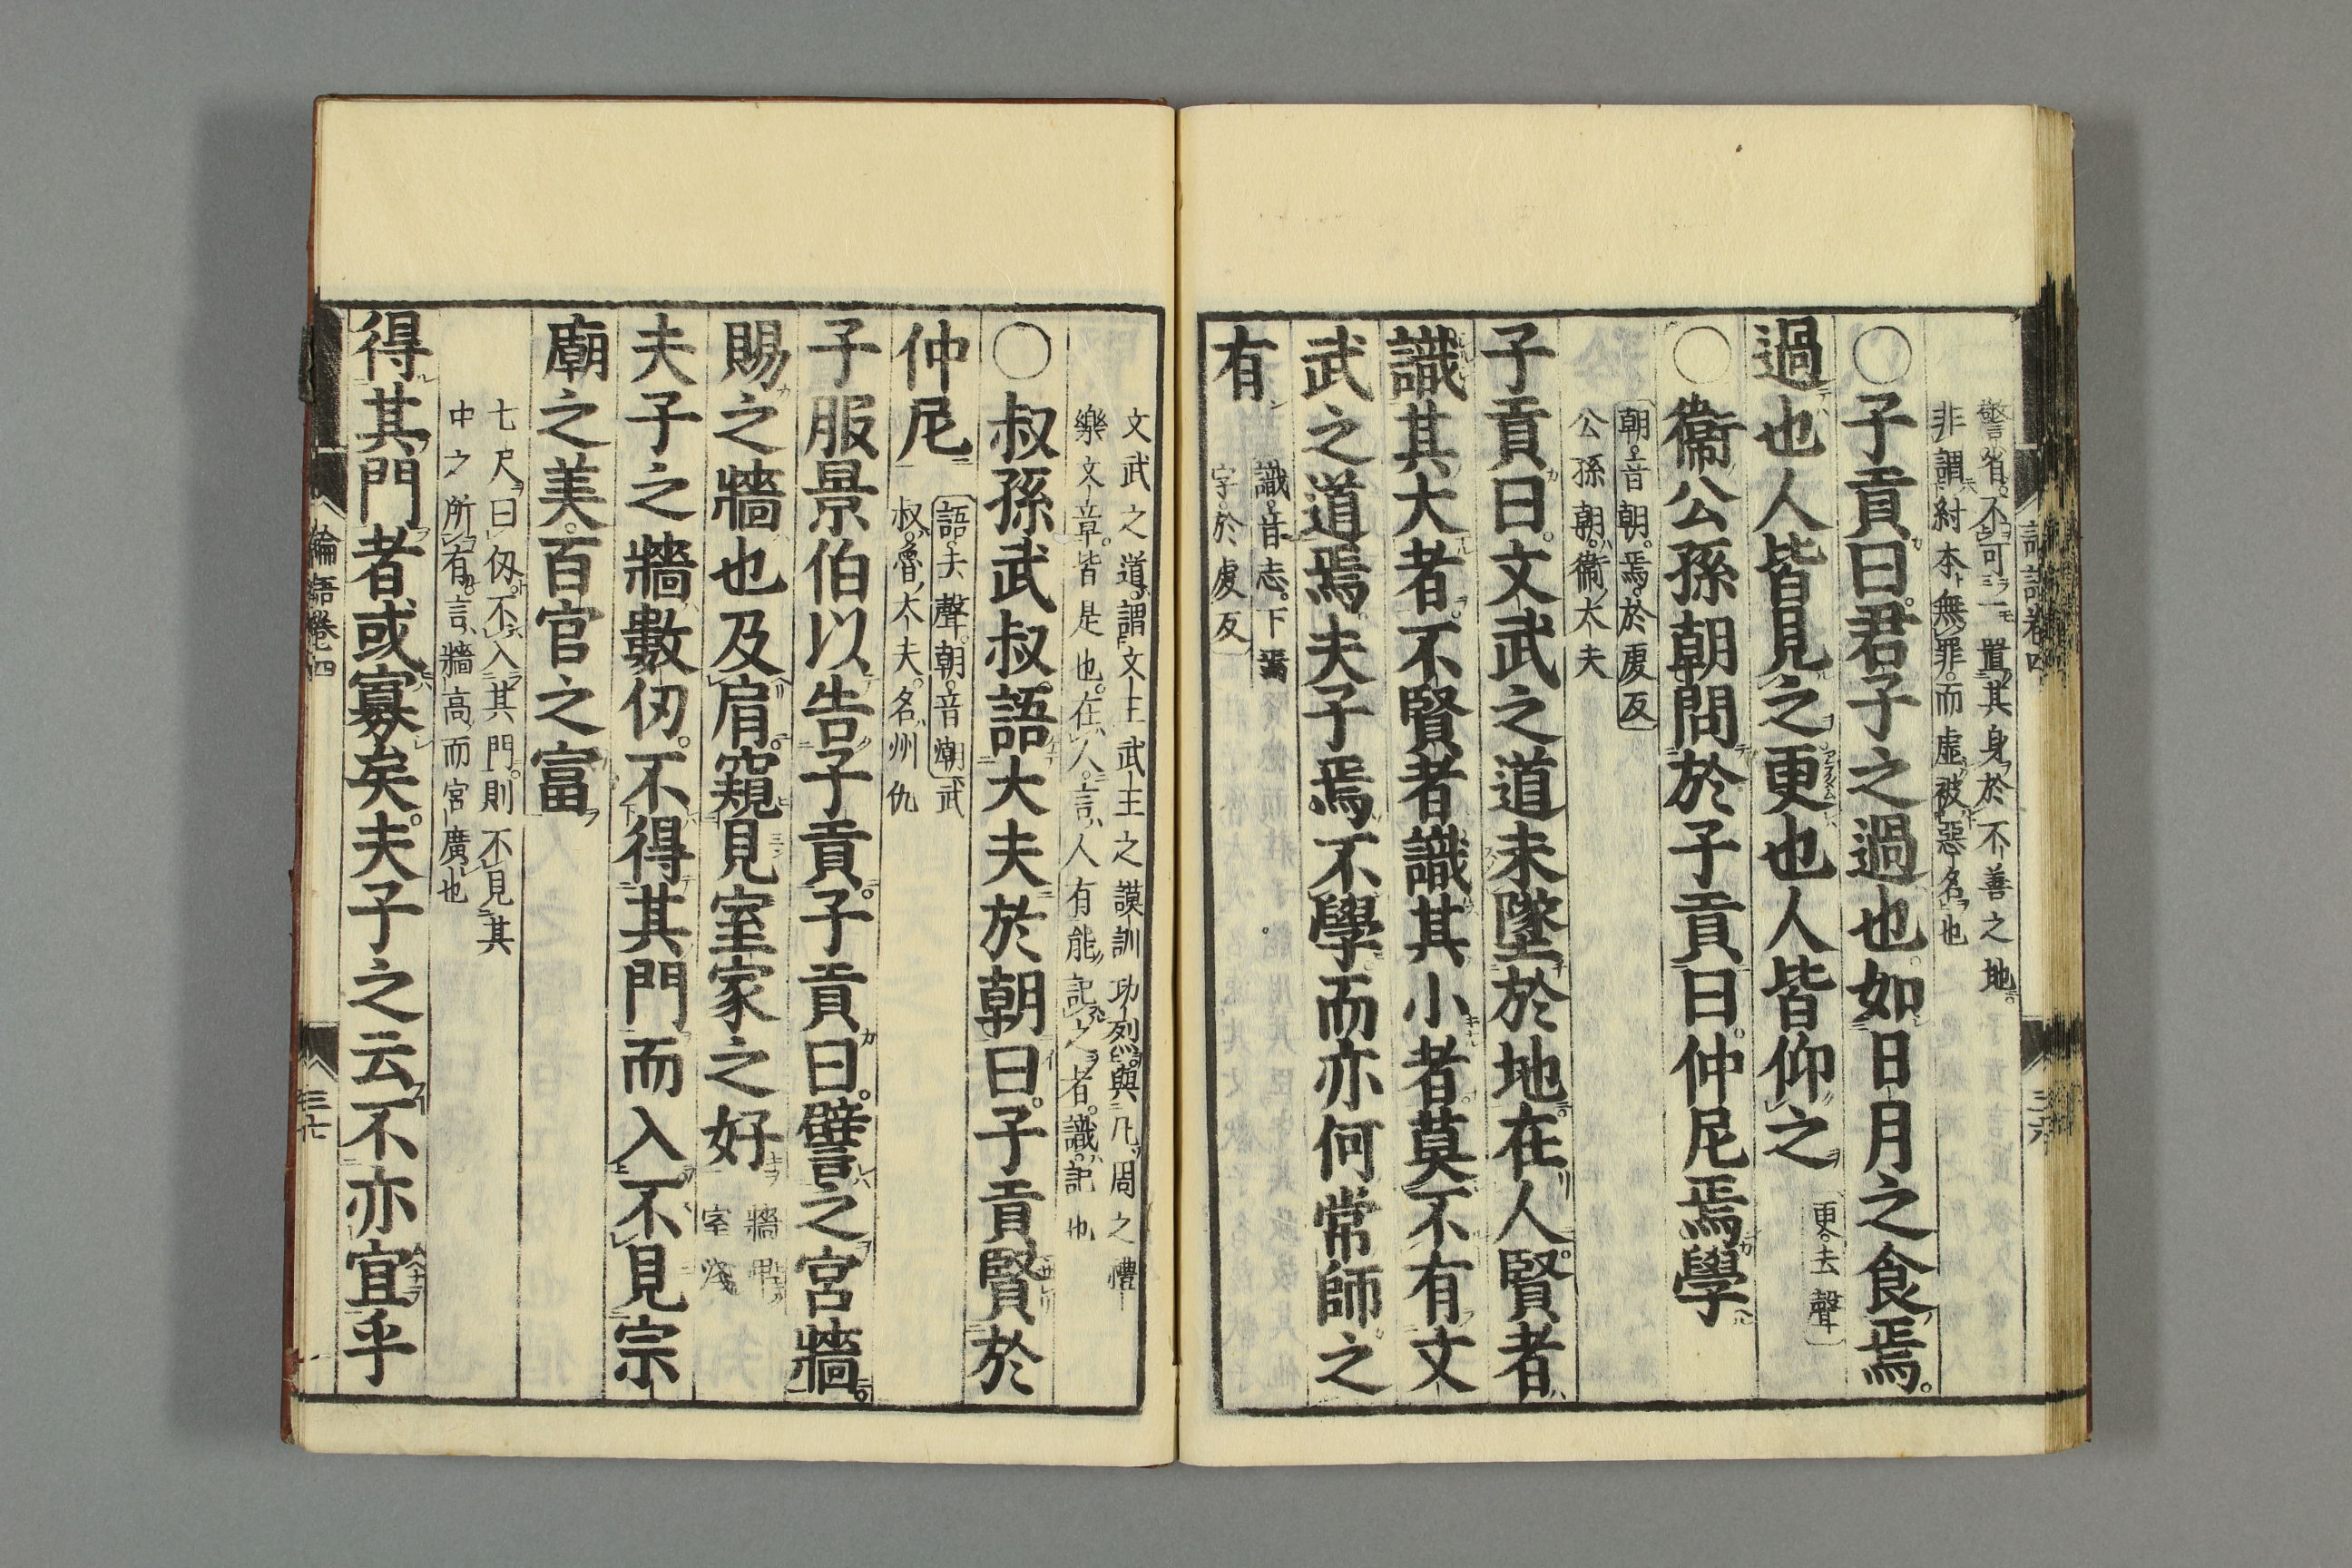 警省不可一置其身於不善之地
非謂紂本無罪而虛被惡名也
○子貢曰君子之過也如日月之食焉
過也人皆見之更也人皆仰之 更去聲
○衞公孫朝問於子貢曰仲尼焉學
朝音朝焉於䖏反
公孫朝衞大夫
子貢曰文武之道未墜於地在人賢者
識其大者不賢者識其小者莫不有文
武之道焉夫子焉不學而亦何常師之
有
識音志下焉
字於䖏反
文武之道謂文王武王之謨訓功烈與凡周之禮
樂文章皆是也在人言人有能記之者識記也
○叔孫武叔語大夫於朝曰子貢賢於
仲尼
語去聲朝音潮武
叔魯大夫名州仇
子服景伯以告子貢子貢曰譬之宮牆
賜之牆也及肩窺見室家之好
牆卑
室淺
夫子之牆數仞不得其門而入不見宗
廟之美百官之富
七尺曰仞不入其門則不見其
中之所有言牆高而宮廣也
得其門者或寡矣夫子之云不亦宜乎
論語卷四
三十七